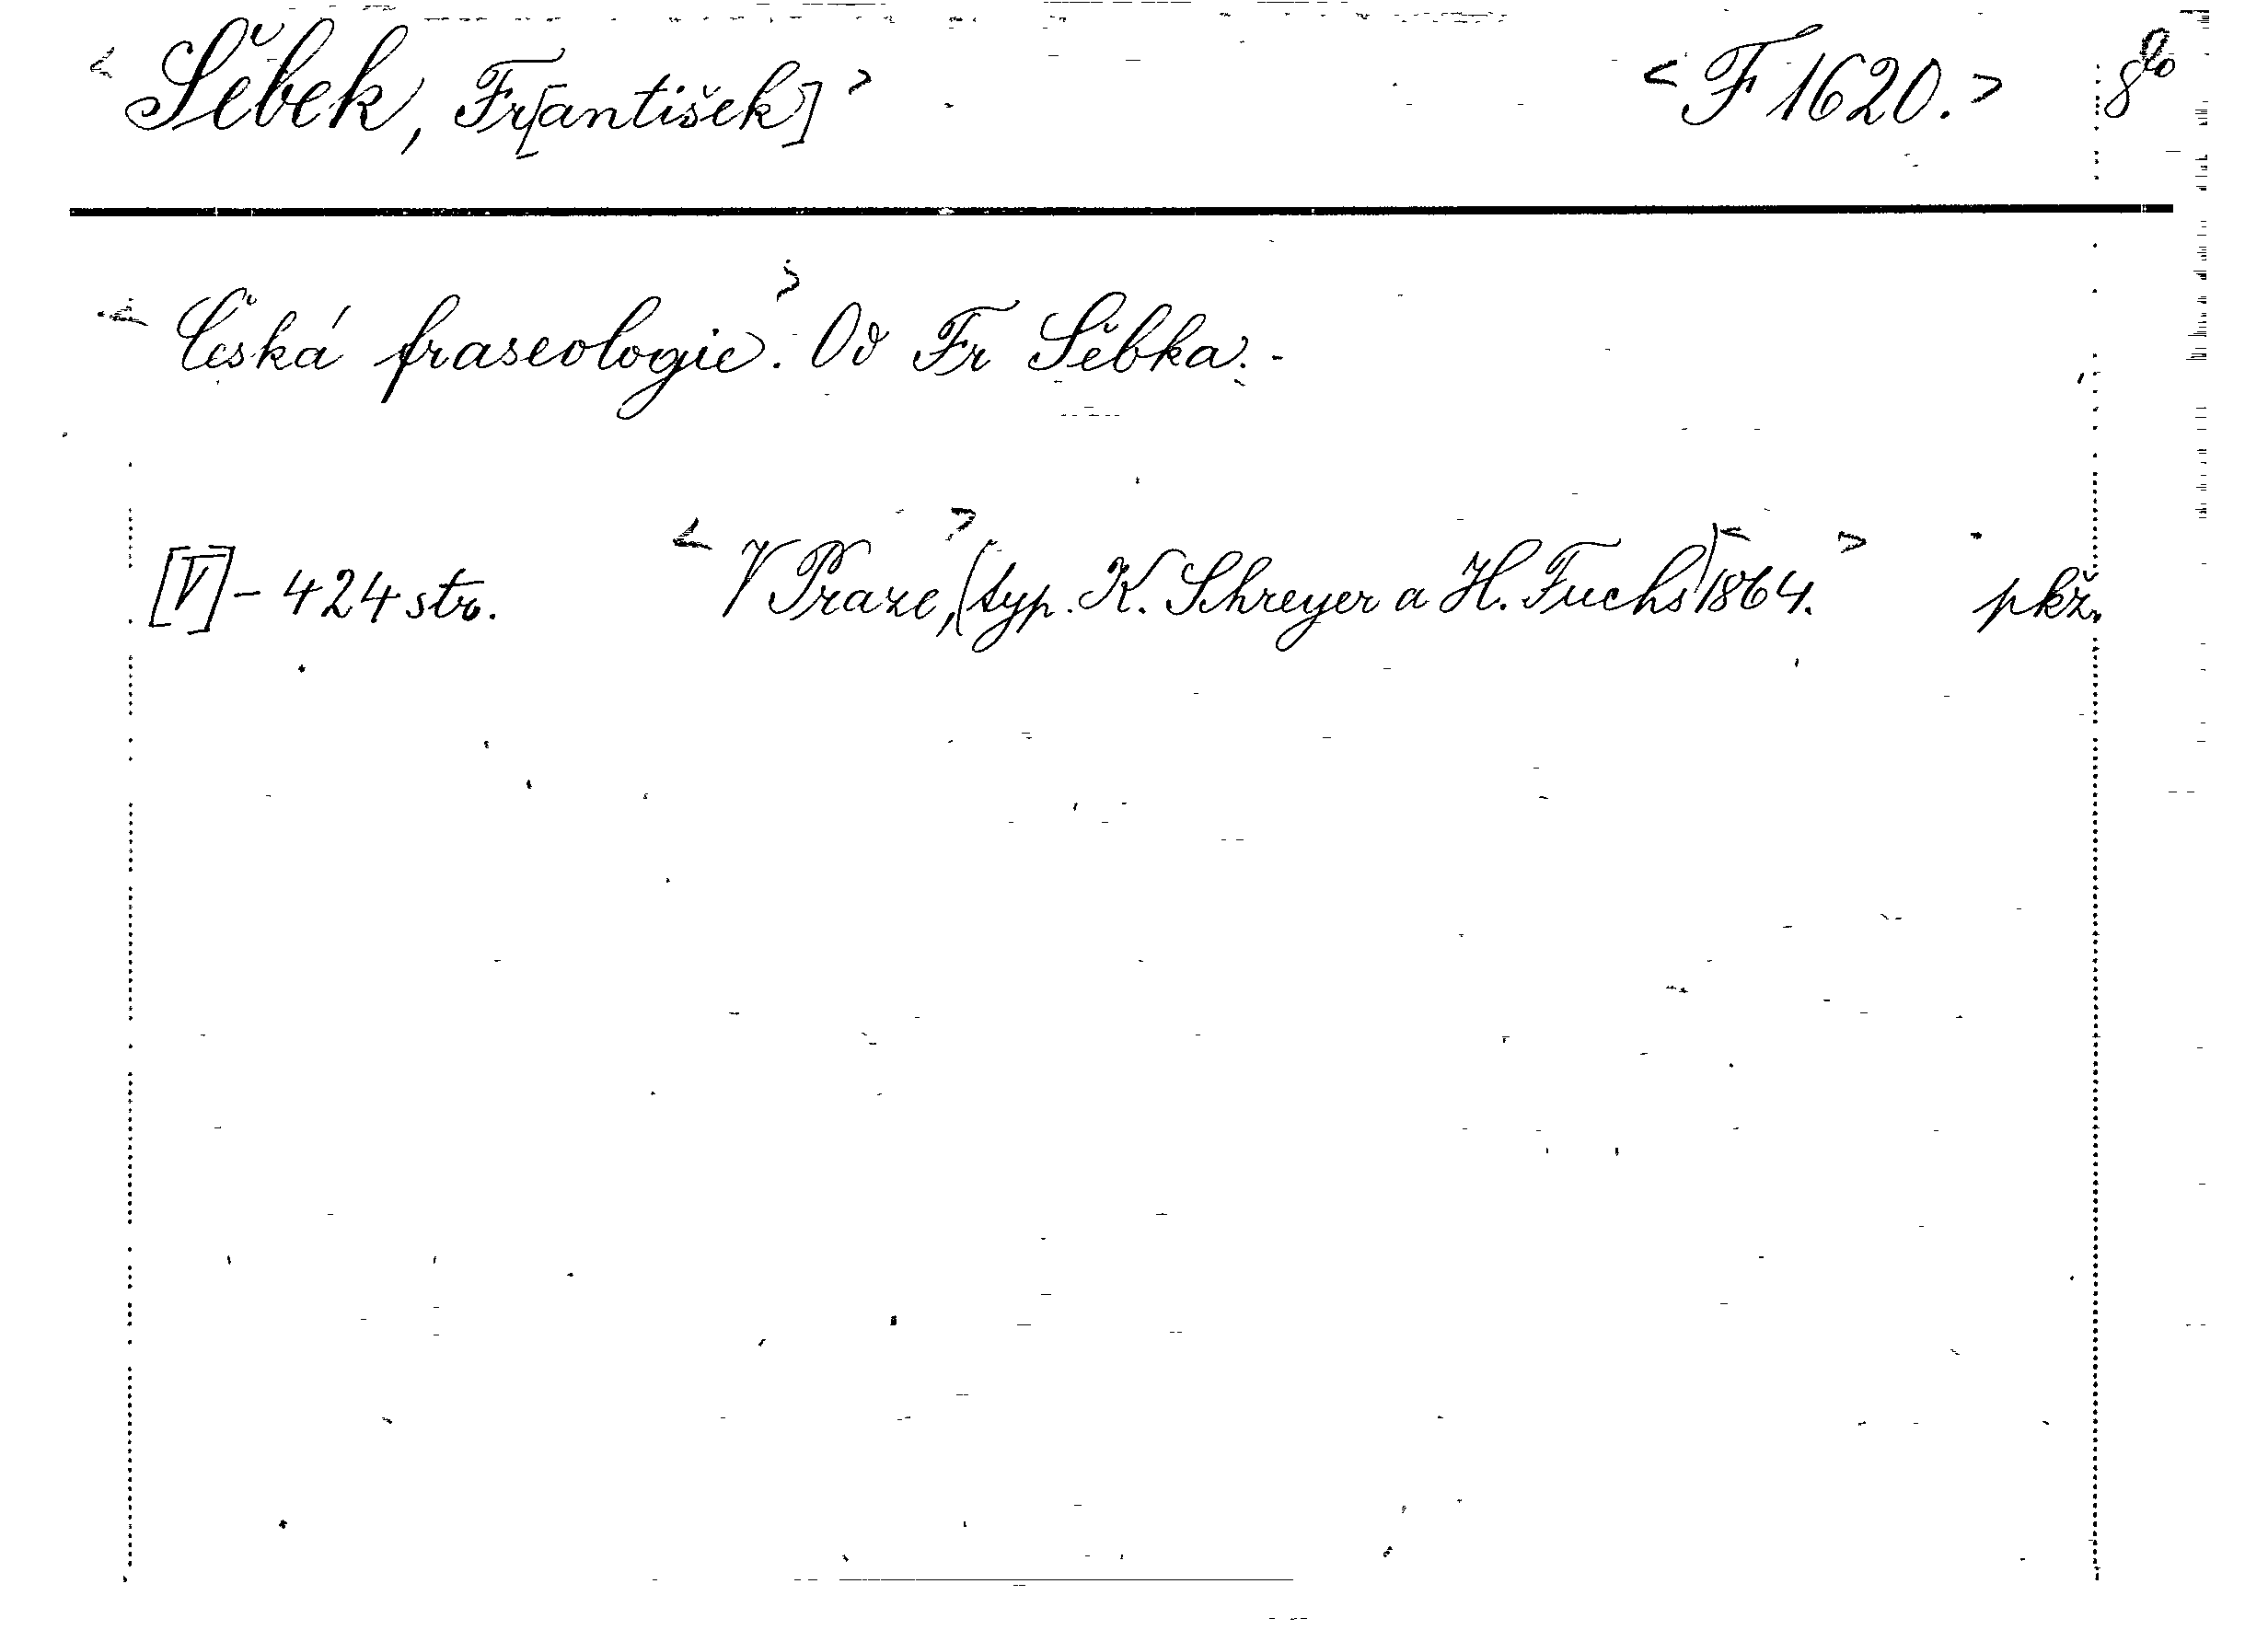 < Šěbek, Fr[antišek] > < F 1620. > 8°
< Česká fraseologie. > Od Fr Šěbka. -
[V] - 424 str. < V Praze, > (typ. K. Schreyer a H. Fuchs) < 1864. > pkž.